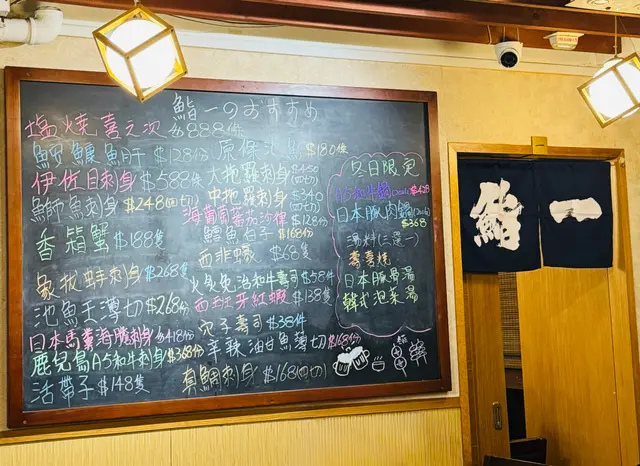 鮨一のおすすめ
塩燒喜之次 $888條
鮟鱇魚肝 $128份
伊佐目刺身 $588條
鰤魚刺身 $248(四切)
香箱蟹 $188隻
象拔蚌刺身 $268隻
池魚王薄切 $268份
日本馬糞海膽刺身 $418份
鹿兒島A5和牛刺身 $368份
活帶子 $148隻
$180條
大拖羅刺身 (四切)
中拖羅刺身 $340
海葡萄 $128份
鱈魚白子 $168份
西非蠔 $68隻
火炙兔治和牛壽司 $58件
西班牙紅蝦 $138隻
穴子壽司 $38件
辛辣油甘魚薄切 $168份
真鯛刺身 $168(四切)
冬日限定
和牛鍋 $428
日本豚肉鍋 $368
湯料(三選一)
壽喜燒
日本豚骨湯
韓式泡菜湯
鮨 一